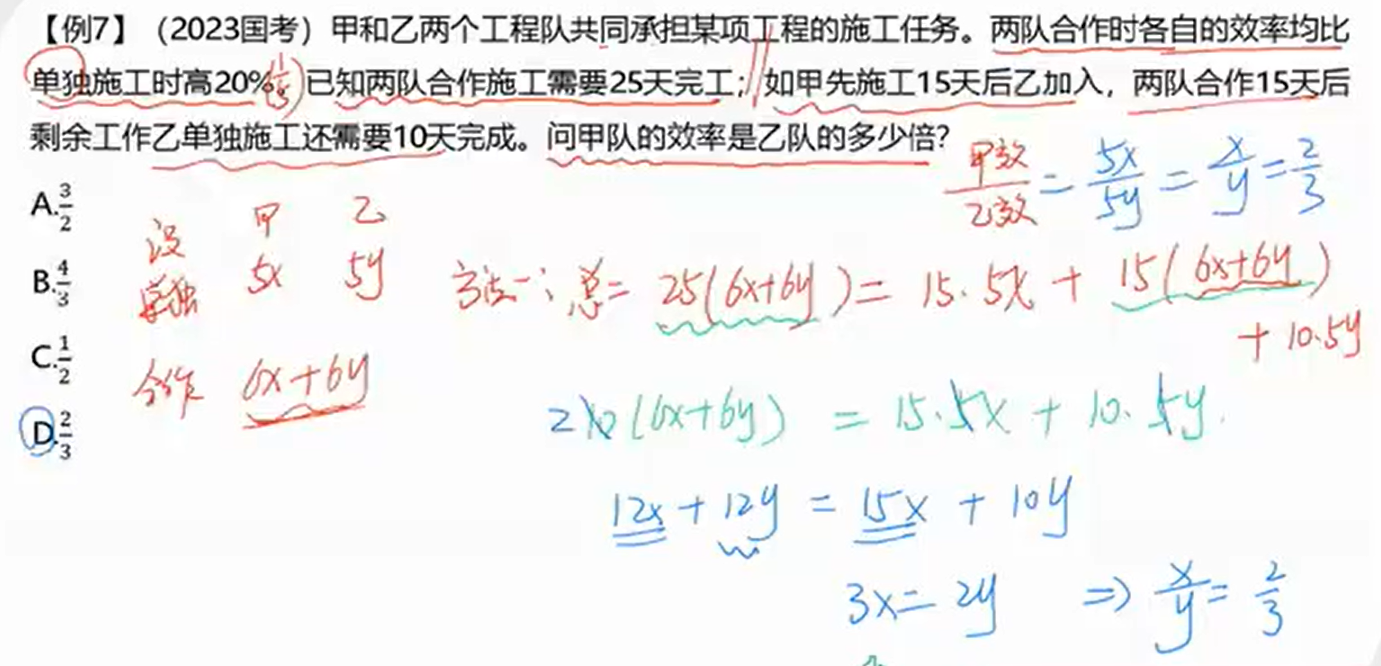 【例7】（2023国考）甲和乙两个工程队共同承担某项工程的施工任务。两队合作时各自的效率均比
单独施工时高20%(1/5)已知两队合作施工需要25天完工；如甲先施工15天后乙加入，两队合作15天后
剩余工作乙单独施工还需要10天完成。问甲队的效率是乙队的多少倍？
甲效/乙效 = 5x/5y = x/y = 2/3
A.3/2
B.4/3
C.1/2
D.2/3
设 甲 乙
单独 5x 5y
合作 6x+6y
方法一：总= 25(6x+6y)= 15·5x + 15(6x+6y)
+ 10·5y
10(6x+6y) = 15·5x + 10·5y
12x + 12y = 15x + 10y
3x= 2y ⇒ x/y = 2/3